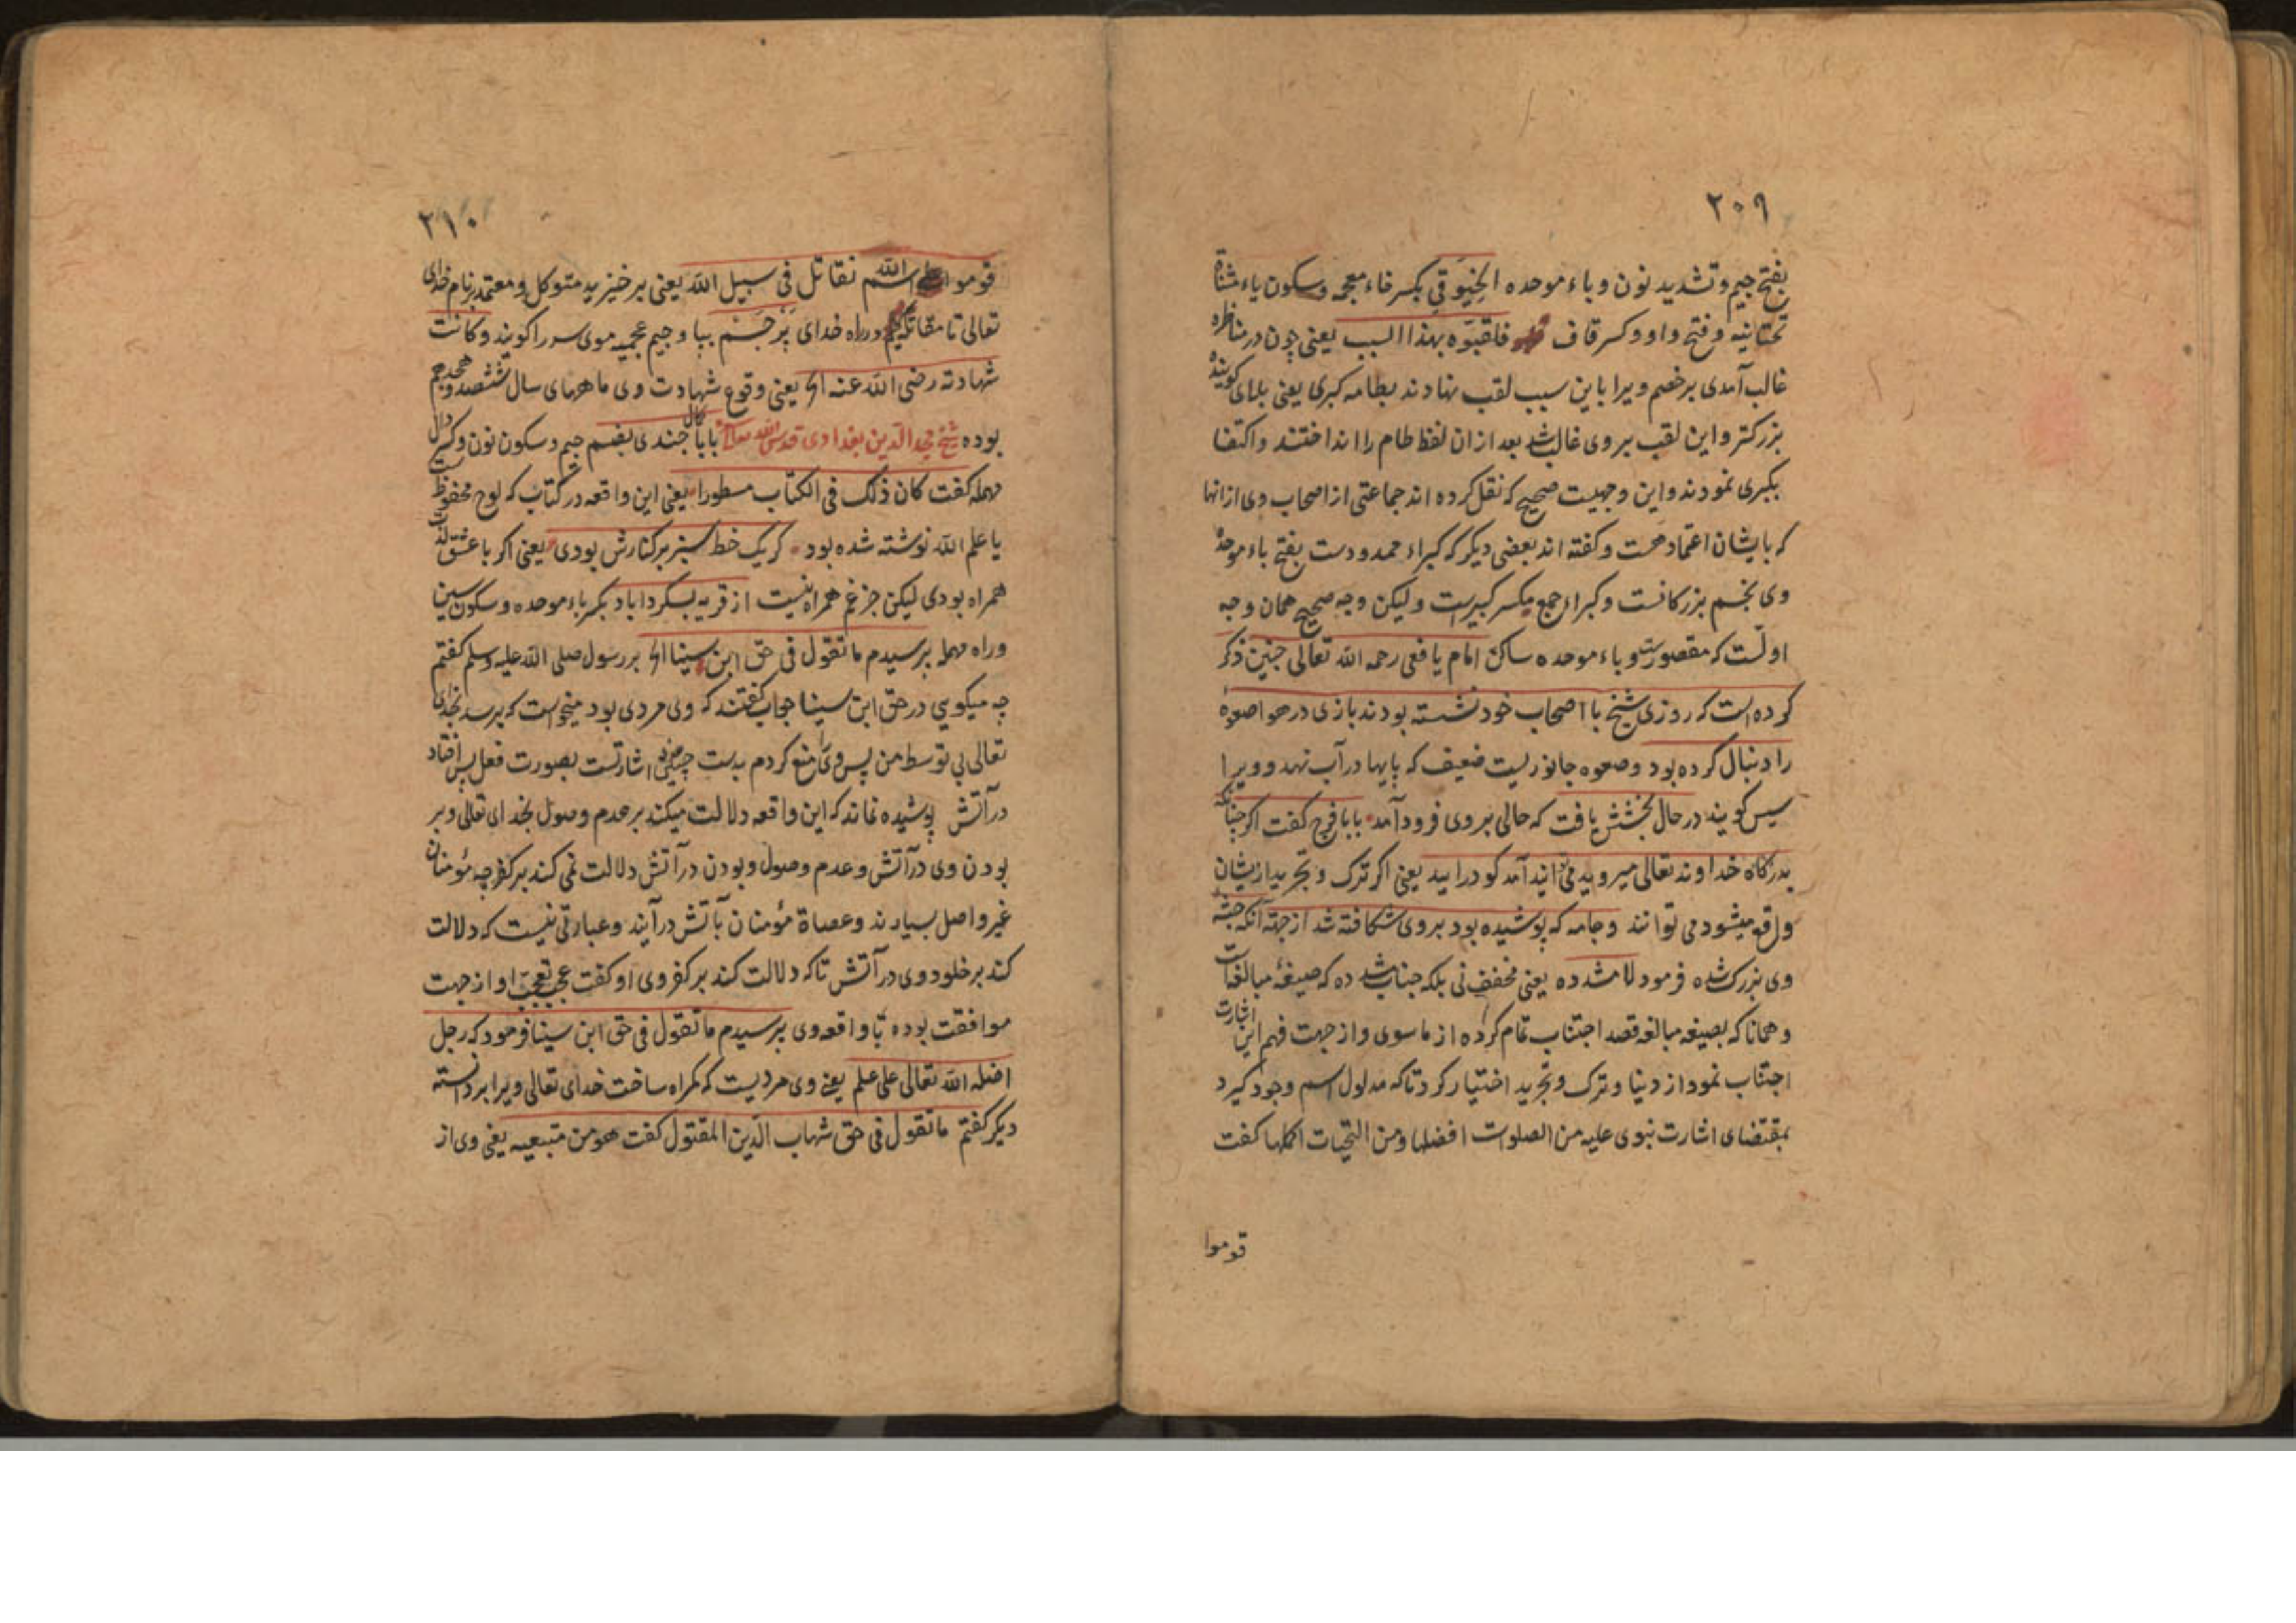 ۲۰۹
بفتح جیم و تشدید نون و باء موحده الخیوقی بکسر خاء معجمه و سکون یاء مثناة
تحتانیه و فتح واو و کسر قاف فلقبوه بهذا السبب یعنی چون در مناظره
غالب آمدی بر خصم ویرا باین سبب لقب نهادند بطامه کبری یعنی بلای گویند
بزرکتر و این لقب بر وی غالب شد بعد از ان لفظ طام را انداختند و اکتفا
بکبری نمودند و این وجهیست صحیح که نقل کرده اند جماعتی از اصحاب وی از انها
که بایشان اعتماد هست و کفته اند بعضی دیکر که کبراء ممدودست بفتح باء موحدهٔ
وی نجم بزرکانست و کبراء جمع مکسر کبیرست ولیکن وجه صحیح همان وجه
اولست که مقصورست و باء موحده ساکن امام یافعی رحمه الله تعالی چنین ذکر
کرده است که روزی شیخ با اصحاب خود نشسته بودند بازی در هوا صعوهٔ
را دنبال کرده بود و صعوه جانوریست ضعیف که پایها در آب نهد و ویرا
سیس کویند در حال بخشش یافت که حالی بر وی فرود آمد بابا فرج کفت اکر چنانکه
بدرکاه خداوند تعالی میروید می آیند آمد کو درایید یعنی اکر ترک و تجرید از یشان
واقع میشود می توانند و جامه که پوشیده بود بر وی شکافته شد از جهة آنکه جثهٔ
وی بزرک شده فرمود لا مشدده یعنی مخفف نی بلکه جناب مشدده که صیغهٔ مبالغه است
و همانا که بصیغه مبالغه قصد اجتناب تمام کرده از ما سوی و از جهت فهم این اشارت
اجتناب نمود از دنیا و ترک و تجرید اختیار کرد تا که مدلول اسم وجود کیرد
بمقتضای اشارت نبوی علیه من الصلوات افضلها و من التحیات اکملها کفت
قوموا
۲۱۰
قوموا علی اسم الله نقاتل فی سبیل الله یعنی بر خیزید متوکل و معتمد بر نام خدای
تعالی تا مقاتله کنیم در راه خدای پَرْچَسْم ببا و جیم عجمیه موی سر را کویند و کانت
شهادته رضی الله عنه الخ یعنی وقوع شهادت وی ماههای سال ششصد و هجدهم
بوده شیخ مجد الدین بغدادی قدس الله تعالی بابا کمال جندی بضم جیم و سکون نون و کسر دال
مهمله کفت کان ذلک فی الکتاب مسطورا یعنی این واقعه در کتاب که لوح محفوظ است
یا علم الله نوشته شده بود کر یک خط سبز بر کنارش بودی یعنی اکر با عشق
همراه بودی لیکن جز غم همراه نیست از قریه بسکرداباد بکسر باء موحده و سکون سین
و راء مهمله پرسیدم ما تقول فی حق ابن سینا الخ بر رسول صلی الله علیه وسلم کفتم
چه میکویی در حق ابن سینا جواب کفتند که وی مردی بود میخواست که برسد بخدای
تعالی بی توسط من پس وی را منع کردم بدست اشارتست بصورت فعل پس افتاد
در آتش پوشیده نماند که این واقعه دلالت میکند بر عدم وصول بخدای تعالی و بر
بودن وی در آتش و عدم وصول و بودن در آتش دلالت نمی کند بر کفر چه مؤمنان
غیر واصل بسیارند و عصاة مؤمنان بآتش در آیند و عبارتی نیست که دلالت
کند بر خلود وی در آتش تا که دلالت کند بر کفر وی او کفت عجب تعجب او از جهت
موافقت بوده با واقعه وی پرسیدم ما تقول فی حق ابن سینا فرمود که رجل
اضله الله تعالی علی علم یعنی وی مردیست که کمراه ساخت خدای تعالی ویرا بر دانسته
دیکر کفتم ما تقول فی حق شهاب الدین المقتول کفت هو من متبعیه یعنی وی از